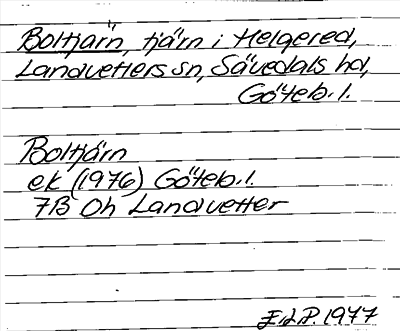 Boltjärn, tjärn i Helgered,
Landvetters sn, Sävedals hd,
Göteb. l.
Boltjärn
ek (1976) Göteb. l.
7B 0h Landvetter
E.L.P. 1977